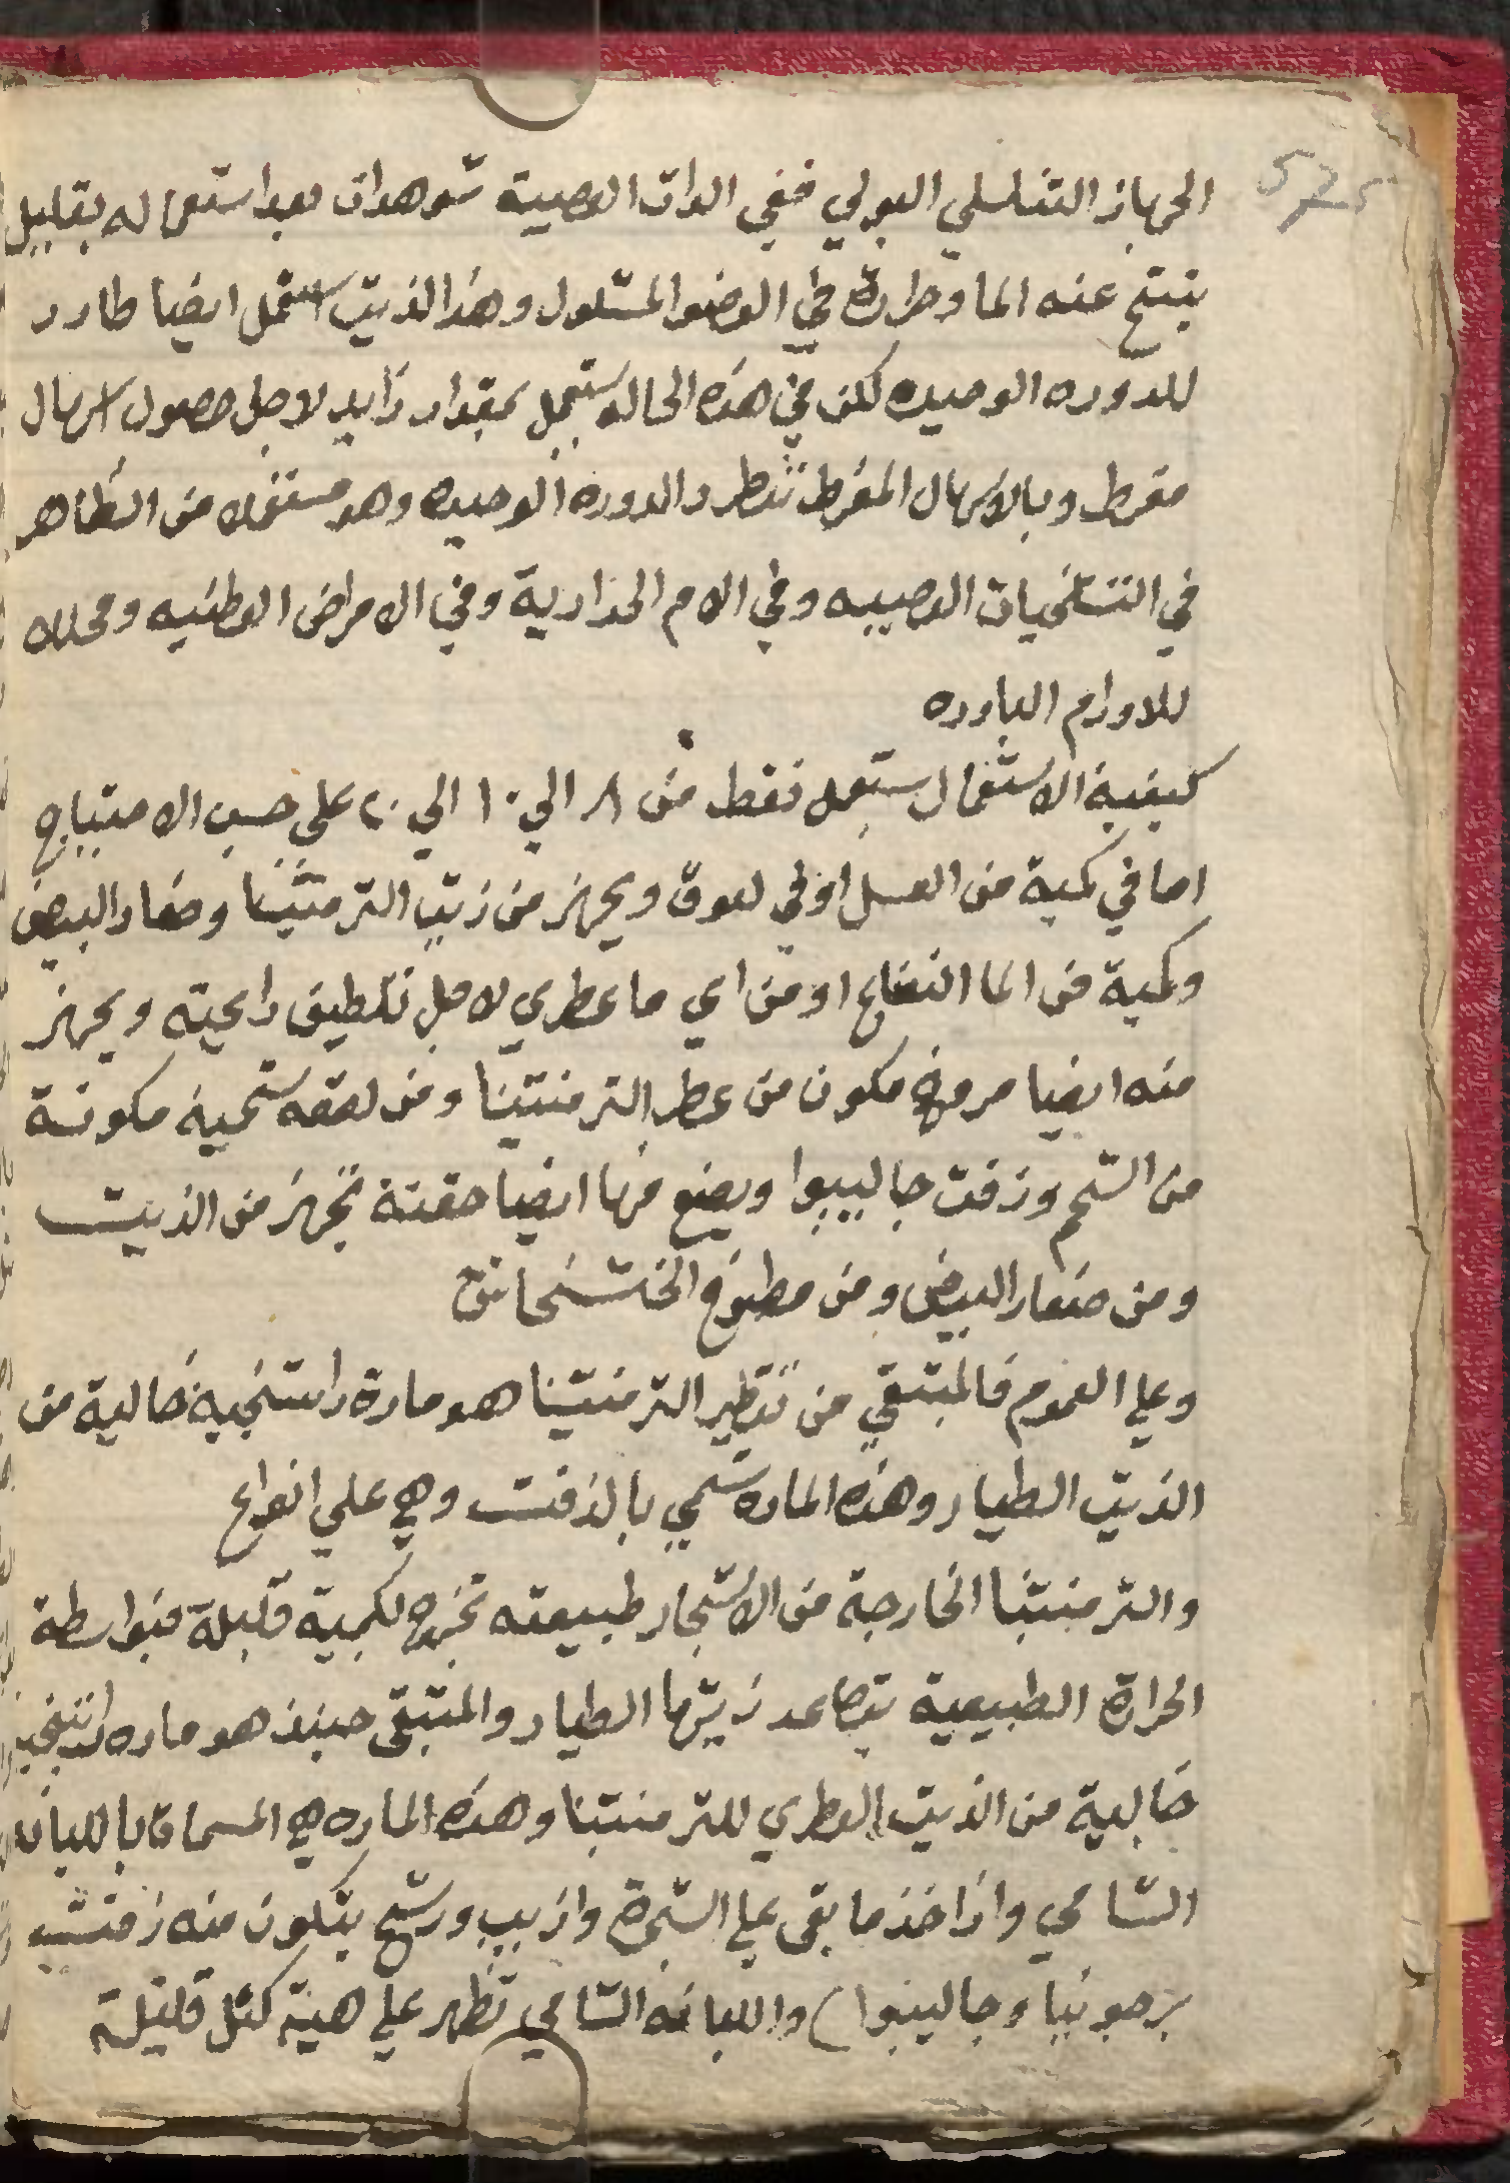 الجهاز التناسلي البولي ففي الدات العصبية شوهدات بعد استعماله بقليل
ينتج عنه الما وحرارة في العضو المشلول وهذا الذيت يستعمل ايضا طارد
للدوره الوحيده لكن في هذه الحاله يستعمل بمقدار زايد لاجل حصول اسهال
مفرط وبالاسهال المفرط تنطرد الدوره الوحيده وهو مستعمل من الظاهر
في التشنجيات العصبيه وفي الام الحدارية وفي الامراض العطنيه ومحللا
للاورام البارده
كيفية الاستعمال يستعمل نقط من ٨ الي ١٠ الي ٢٠ على حسب الاحتياج
اما في كمية من العسل او في لعوق ويجهز من زيت الترمنتينا وصفار البيض
وكمية من الما النعناع او من اي ما عطري لاجل تلطيف رايحته ويجهز
منه ايضا مروخ مكون من عطر الترمنتينا ومن لعقه شحمية مكونة
من الشحم وزفت جالیپوا ويصنع منها ايضا حقنة تجهز من الذيت
ومن صفار البيض ومن مطبوخ الخشخاش
وعلي العموم فالمتبقي من تقطير الترمنتينا هو مادة راتنجية خالية من
الذيت الطيار وهذه الماده تسمي بالذفت وهي علي انواع
والترمنتينا الخارجة من الاشجار طبيعته تخرج لكمية قليلة فبواسطة
الحرارة الطبيعية يتصاعد زيتها الطيار والمتبقى حينئذ هو ماده راتنجية
خالية من الذيت العطري للترمنتينا وهذه الماده هي المسماة باللبانه
الشامي واذا اخذ ما بقى علي الشجرة واذيب ورشح يتكون منه زفت
برجونيا وجالیپوا) واللبانه الشامي تظهر علي هيئة كتل قليلة